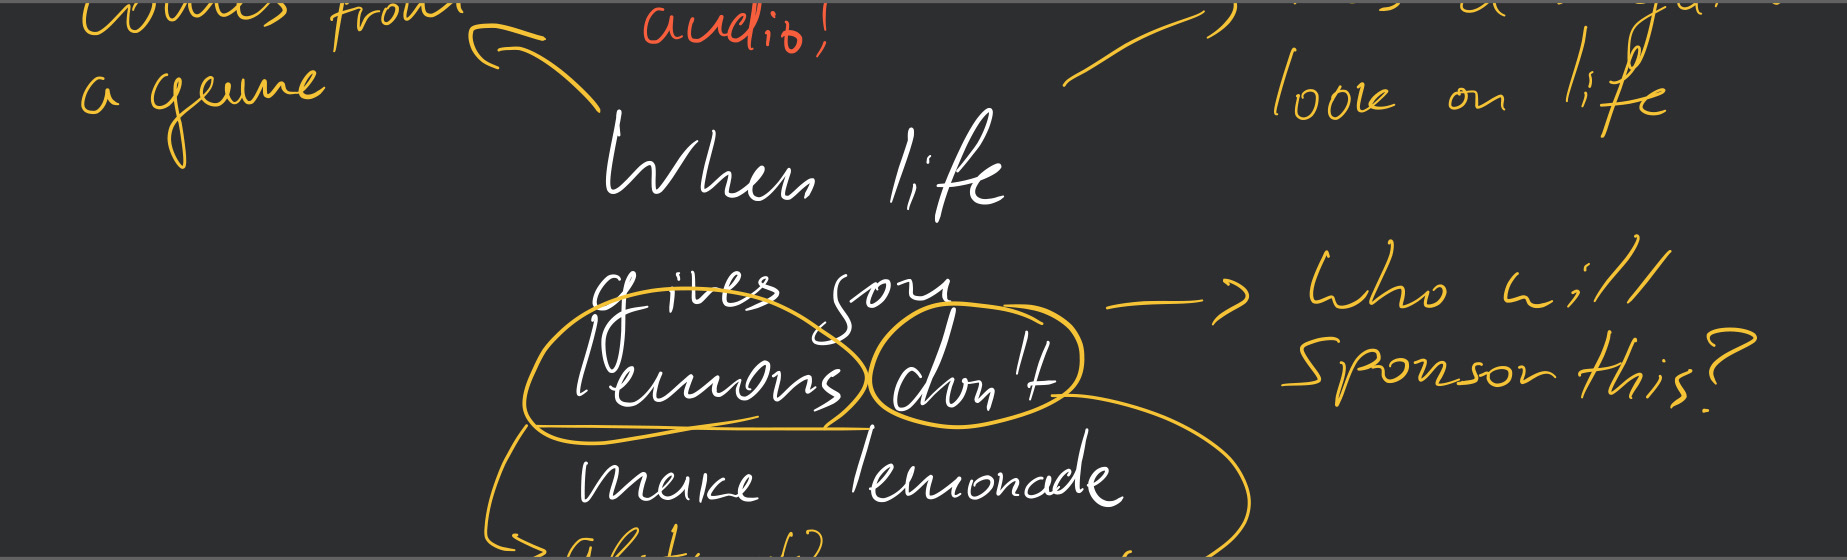 comes from
a game
audio!
look on life
When life
gives you
lemons don't
make lemonade
Who will
sponsor this?